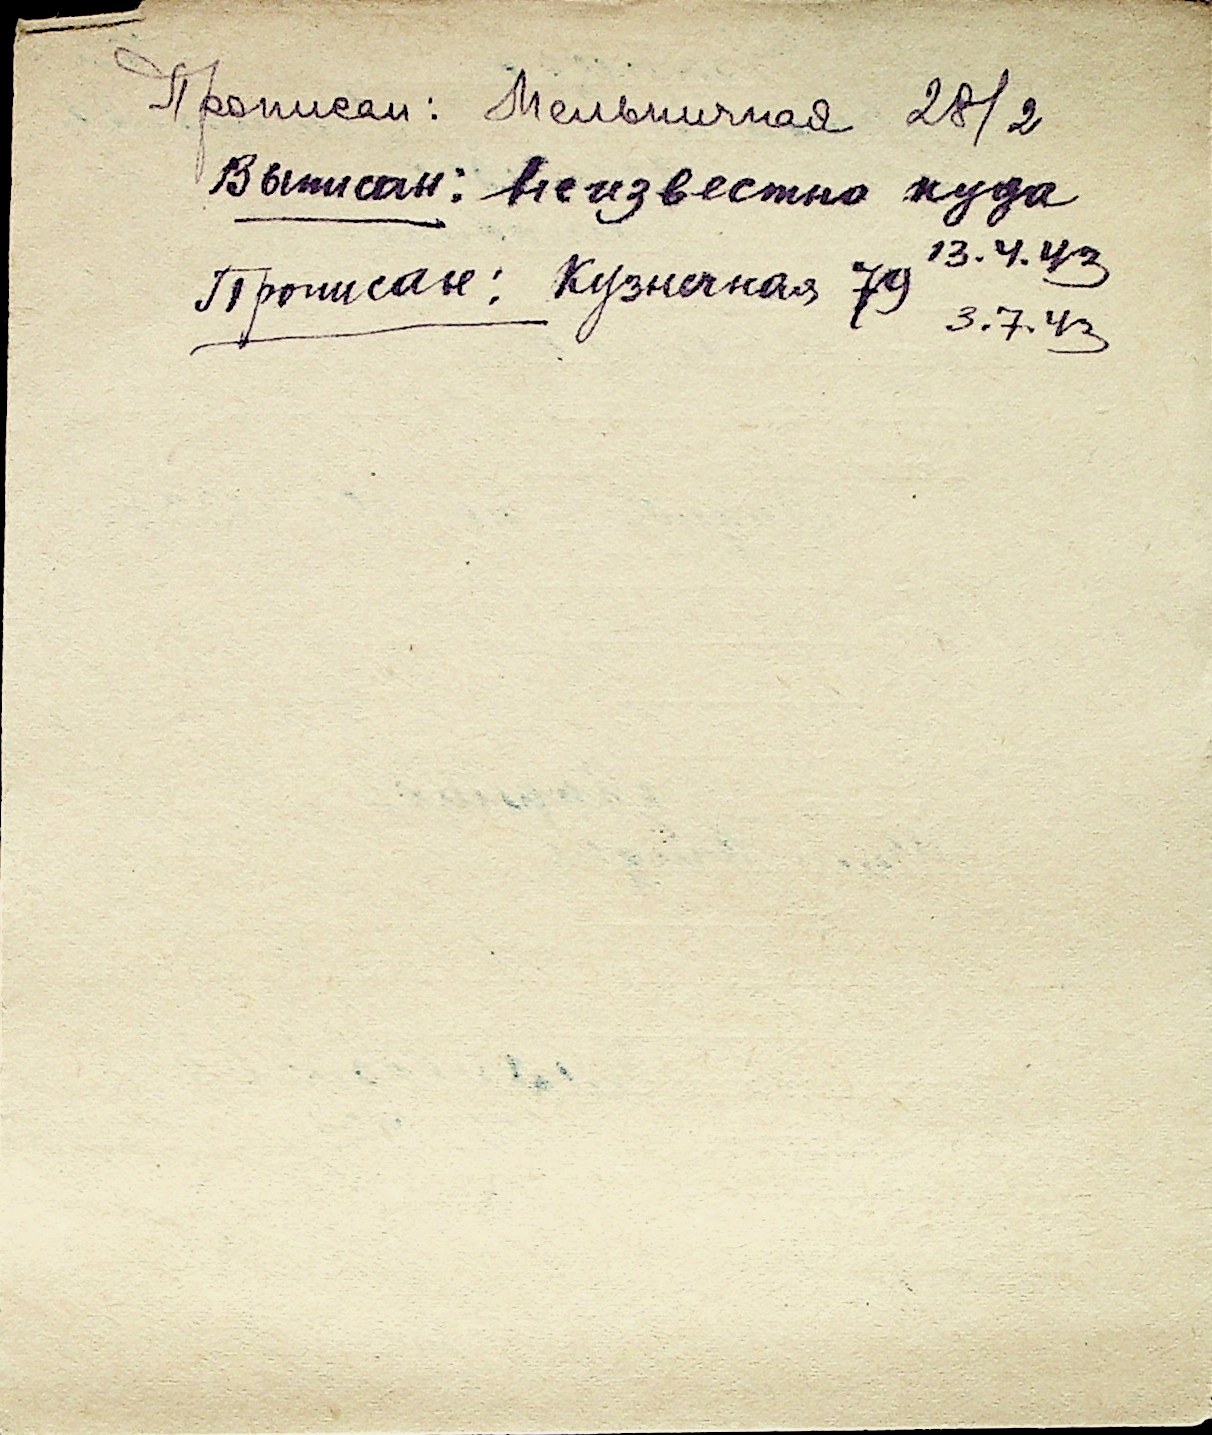 Прописан: Мельничная 28/2
Выписан: неизвестно куда
13.4.43
Прописан: Кузнечная 79
3.7.43